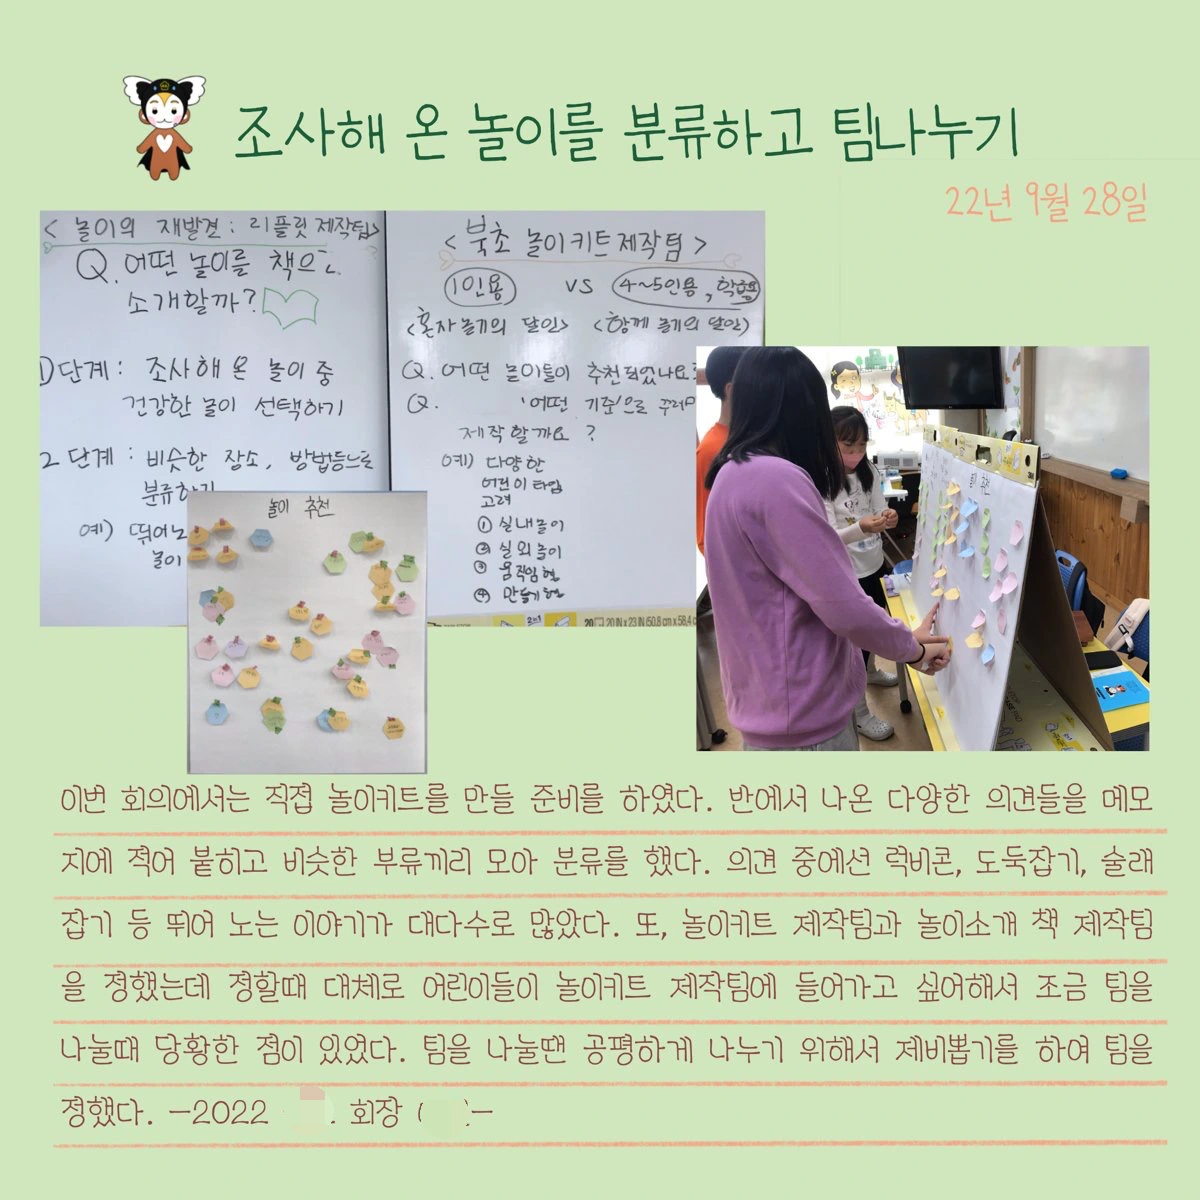 조사해 온 놀이를 분류하고 팀나누기
22년 9월 28일
< 놀이의 재발견 : 리플릿 제작팀>
Q. 어떤 놀이를 책으로
소개할까?
1)단계 : 조사해 온 놀이 중
건강한 놀이 선택하기
2 단계 : 비슷한 장소, 방법등으로
분류하기
예) 뛰어노
놀이
< 북초 놀이키트 제작팀 >
1인용 vs 4~5인용, 학급용
<혼자 놀기의 달인> <함께 놀기의 달인>
Q. 어떤 놀이들이 추천되었나요?
Q. '어떤 기준'으로 꾸러미
제작할까요 ?
예) 다양한
어린이 타입
고려
① 실내놀이
② 실외놀이
③ 움직임형
④ 만들기형
20 20 IN x 23 IN (50.8 cm x 58.4 c
놀이 추천
놀이 추천
이번 회의에서는 직접 놀이키트를 만들 준비를 하였다. 반에서 나온 다양한 의견들을 메모
지에 적어 붙히고 비슷한 부류끼리 모아 분류를 했다. 의견 중에선 럭비콘, 도둑잡기, 술래
잡기 등 뛰어 노는 이야기가 대다수로 많았다. 또, 놀이키트 제작팀과 놀이소개 책 제작팀
을 정했는데 정할때 대체로 어린이들이 놀이키트 제작팀에 들어가고 싶어해서 조금 팀을
나눌때 당황한 점이 있었다. 팀을 나눌땐 공평하게 나누기 위해서 제비뽑기를 하여 팀을
정했다. -2022 . 회장 ( )-